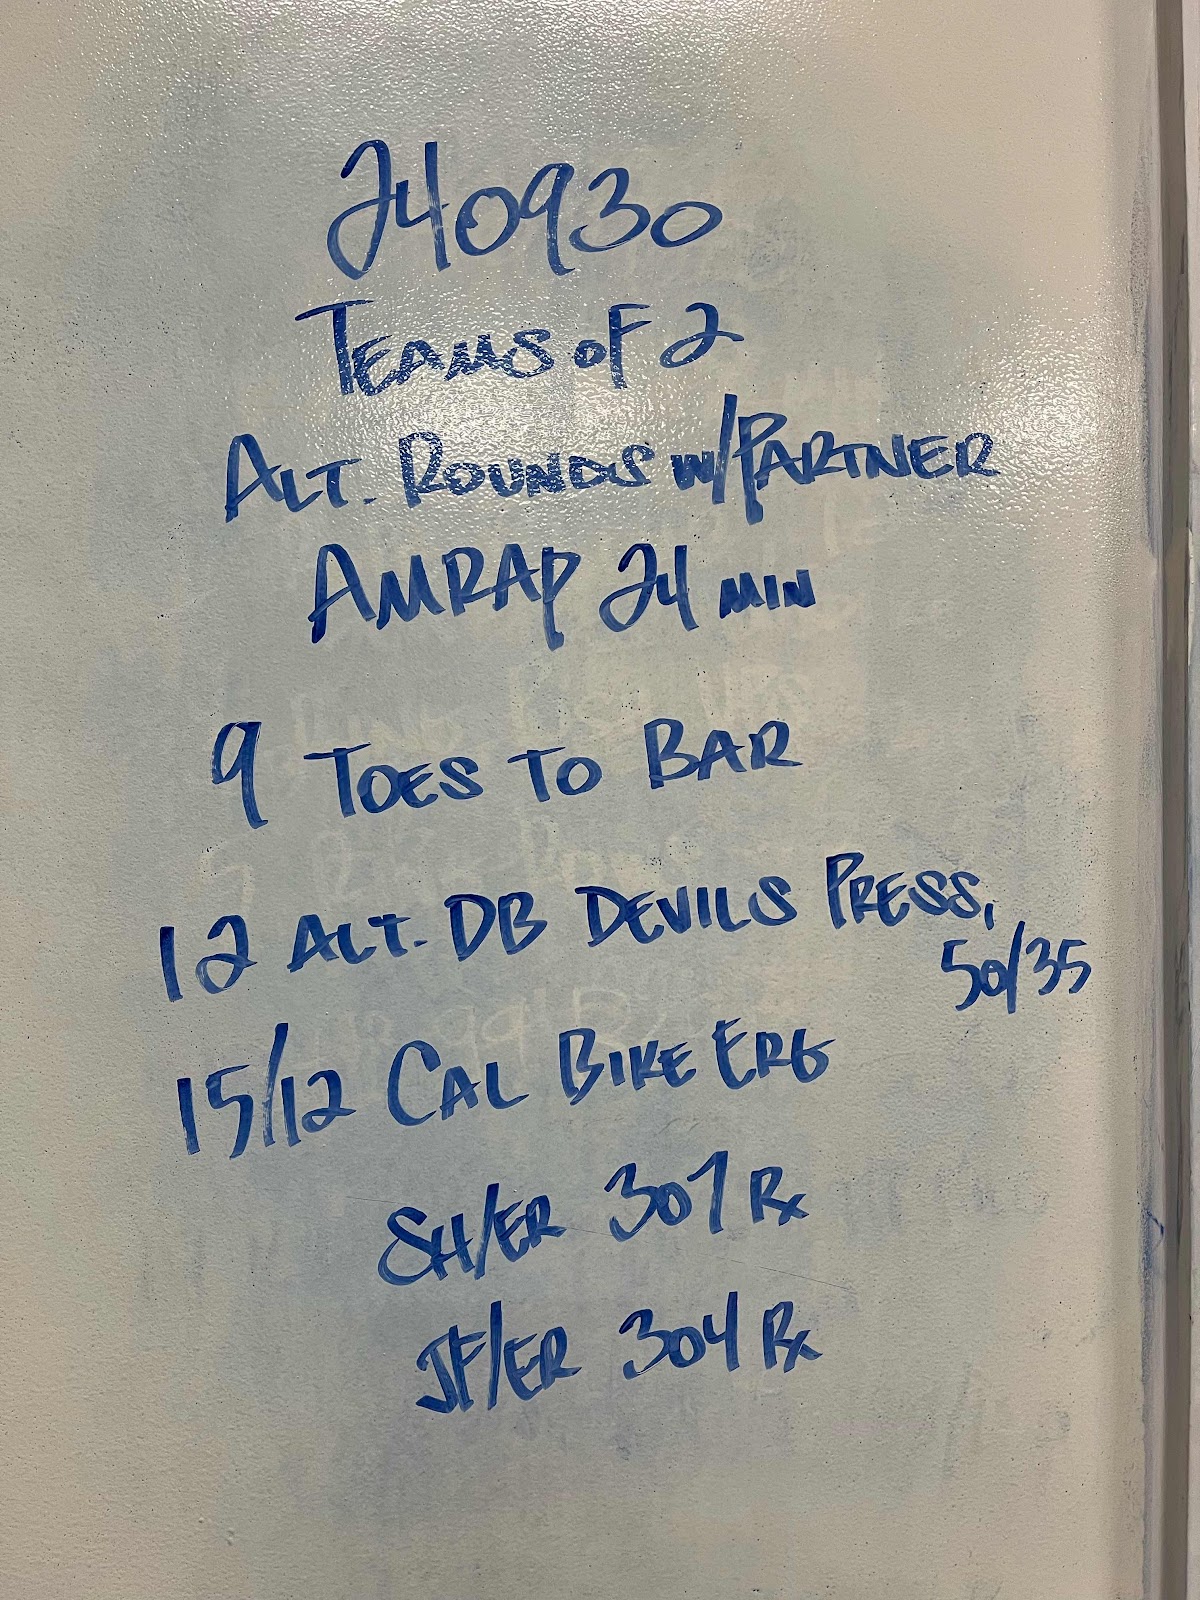 240930
TEAMS OF 2
ALT. ROUNDS W/PARTNER
AMRAP 24 MIN
9 TOES TO BAR
12 ALT. DB DEVILS PRESS,
50/35
15/12 CAL BIKE ERG
SH/ER 307 Rx
JF/ER 304 Rx